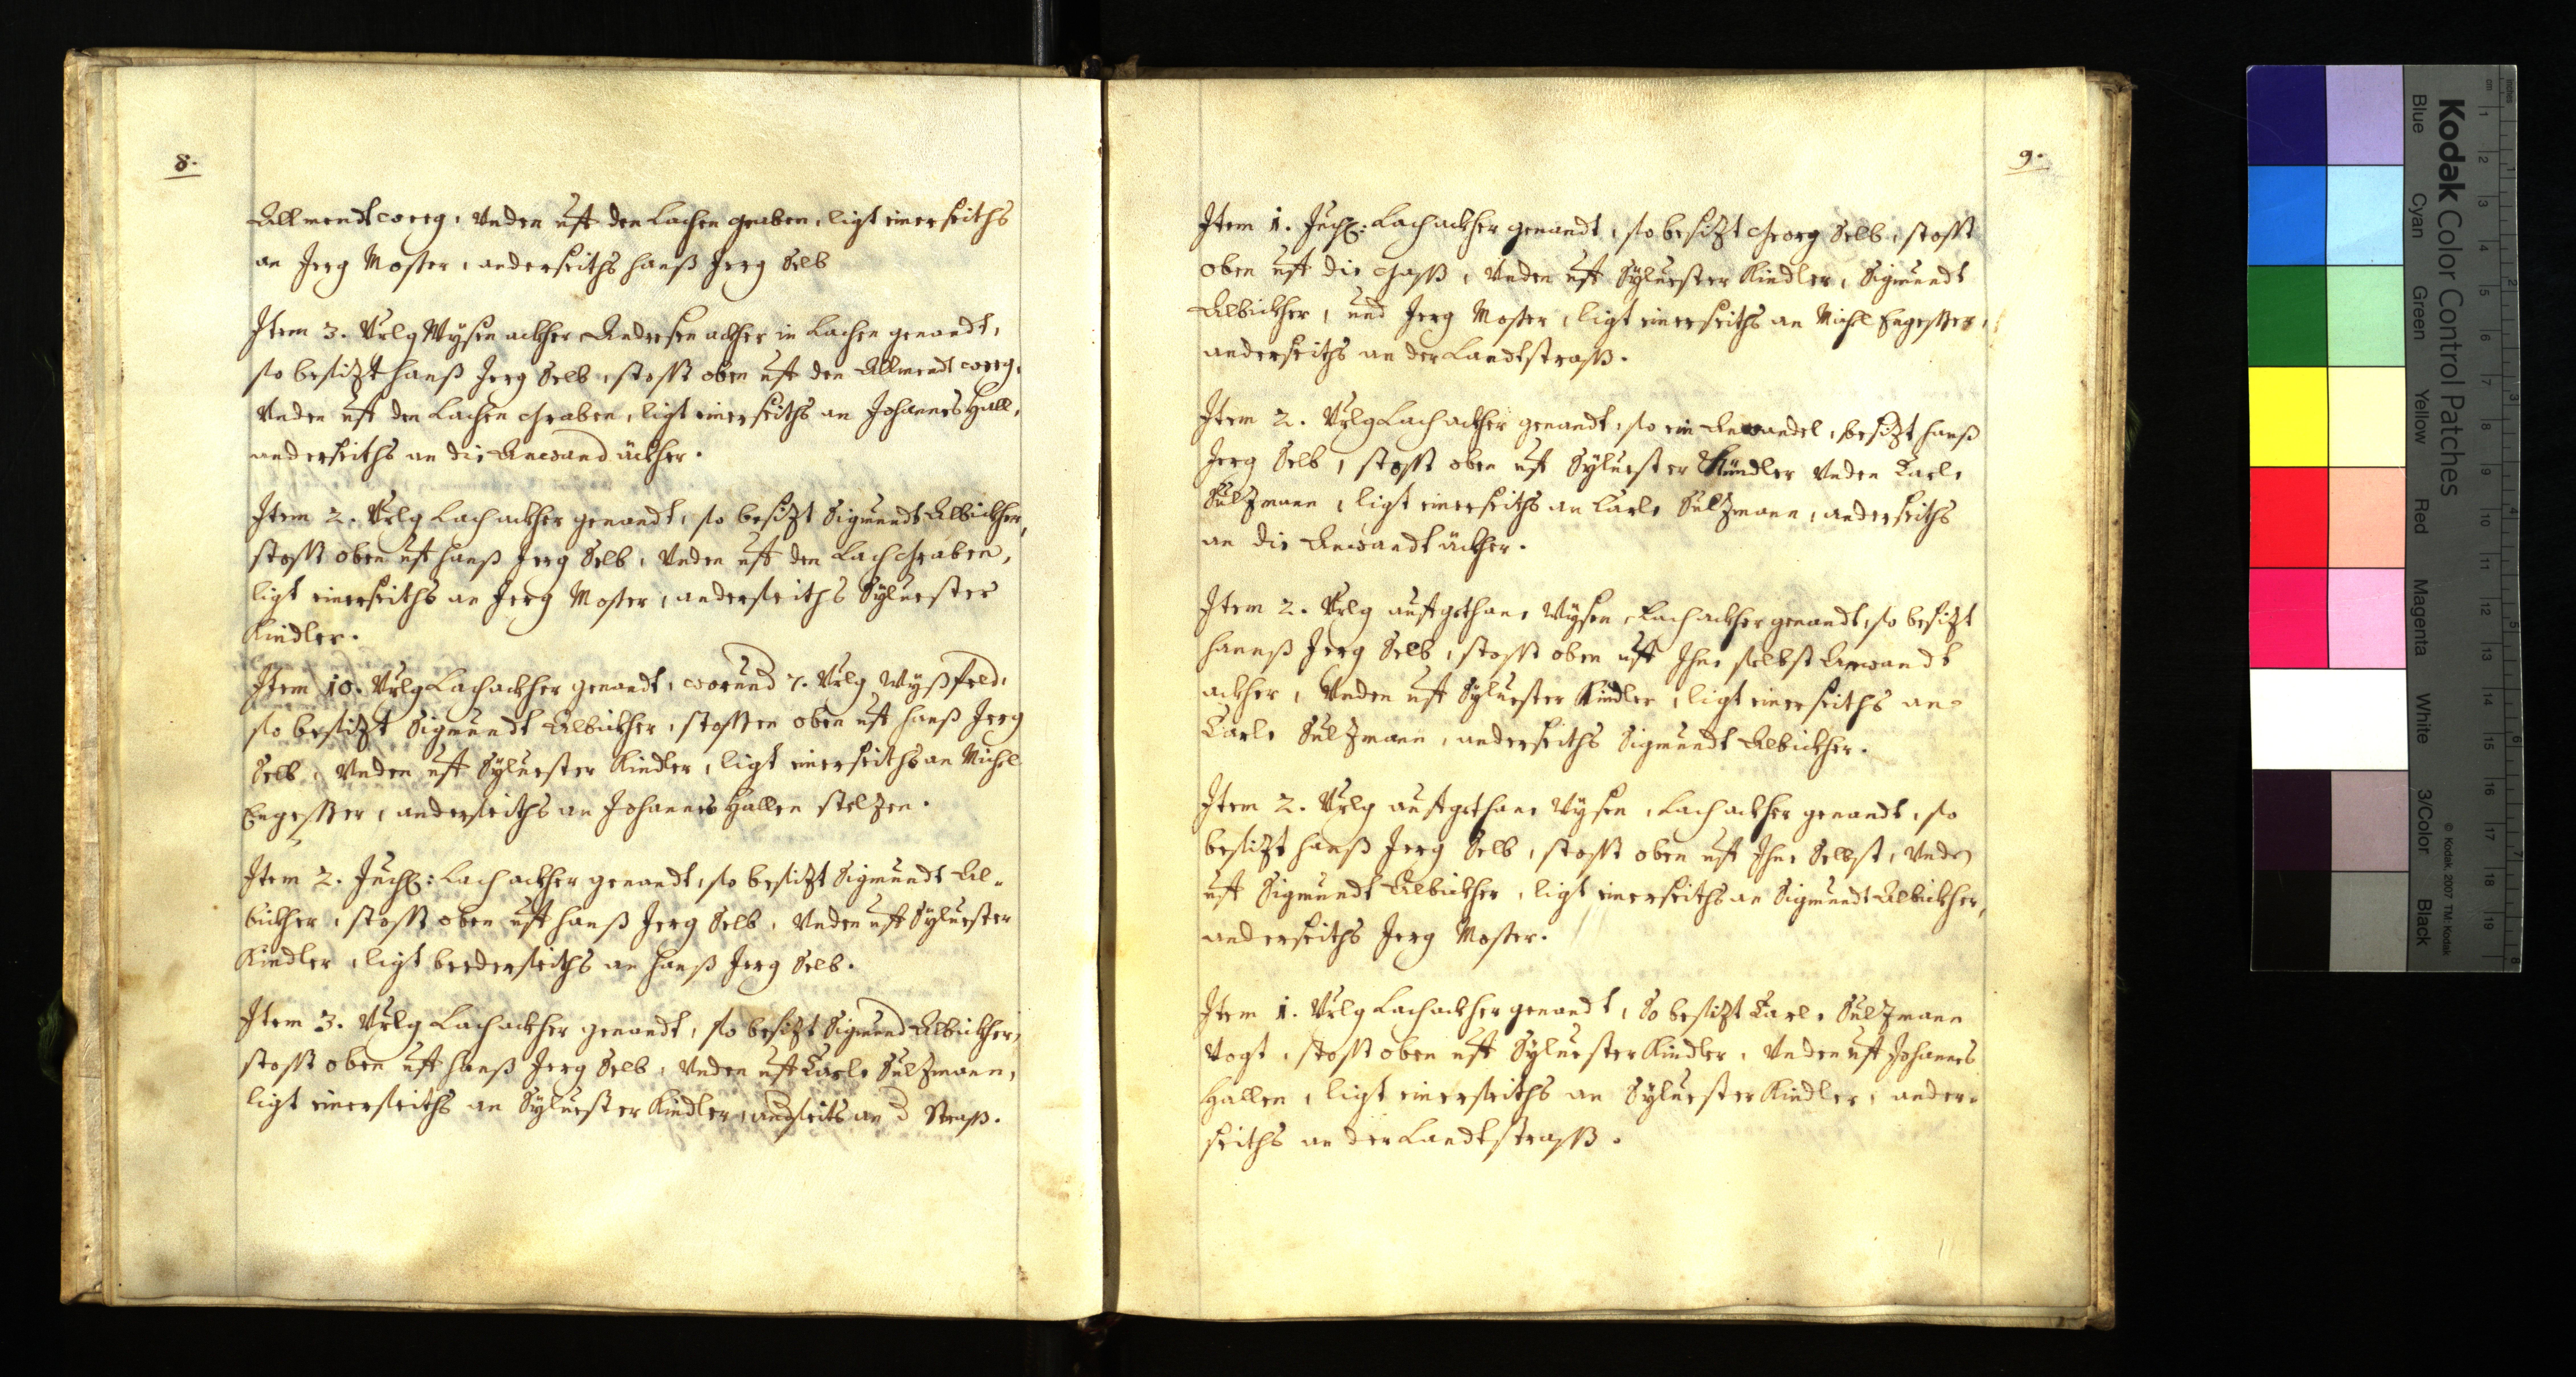 8.
Allmendtweeg, Vnden uft den Lachen graben, ligt einerseiths
an Jerg Moster, anderseiths hanß Jerg Selb
Item 3. Vrlg Wysen ackher Anderen ackher in Lachen genandt,
so besizt hanß Jerg Selb, stosst oben uft den Allmendt weeg,
Vnden uft den Lachen Graben, ligt einerseiths an Johannes Hall,
anderseiths an die Anwand äckher.
Item 2. Vrlg Lach ackher genandt, so besizt Sigmundt Albickher,
stosst oben uft hanß Jerg Selb, Vnden uft den Lach Graben,
ligt einerseiths an Jerg Moster, anderseiths Sÿluester
Kindler.
Item 10. Vrlg Lach ackher genandt, worund 7. Vrlg Wyßfeld,
so besizt Sigmundt Albickher, stossen oben uft hanß Jerg
Selb, Vnden uft Sÿluester Kindler, ligt einerseiths an Michl
Engesser, anderseiths an Johannes Hallen stelzen.
Item 2. Juch: Lach ackher genandt, so besizt Sigmundt Al-
bickher, stosst oben uft hanß Jerg Selb, Vnden uft Sÿluester
Kindler, ligt beederseiths an hanß Jerg Selb.
Item 3. Vrlg Lach ackher genandt, so besizt Sigmund Albickher,
stosst oben uft hanß Jerg Selb, Vnden uft Carle Sulzmann,
ligt einerseiths an Sÿluester Kindler, andseits an d Straß.
9.
Item 1. Juch: Lach ackher genandt, so besizt Georg Selb, stosst
oben uft die Gaß, Vnden uft Sÿluester Kindler, Sigmundt
Albickher, und Jerg Moster, ligt einerseiths an Michl Engesser,
anderseiths an der Landtstraß.
Item 2. Vrlg Lach ackher genandt, so ein Anwandel, besizt hanß
Jerg Selb, stosst oben uft Sÿluester Kindler Vnden Carle
Sulzmann, ligt einerseiths an Carle Sulzmann, anderseiths
an die Anwandt äckher.
Item 2. Vrlg auftgethane Wysen, Lach ackher genandt, so besizt
hannß Jerg Selb, stosst oben uft Ihne selbst Anwandt
ackher, Vnden uft Sÿluester Kindler, ligt einerseiths an
Carle Sulzmann, anderseiths Sigmundt Albickher.
Item 2. Vrlg auftgethane Wysen, Lach ackher genandt, so
besizt hanß Jerg Selb, stosst oben uft Ihne Selbst, Vnden
uft Sigmundt Albickher, ligt einerseiths an Sigmundt Albickher,
anderseiths Jerg Moster.
Item 1. Vrlg Lach ackher genandt, So besizt Carle Sulzmann
Vogt, stosst oben uft Sÿluester Kindler, Vnden uft Johannes
Hallen, ligt einerseiths an Sÿluester Kindler, ander-
seiths an der Landtstraß.
Kodak Color Control Patches
Blue Cyan Green Yellow Red Magenta White 3/Color Black
© Kodak 2007 TM: Kodak